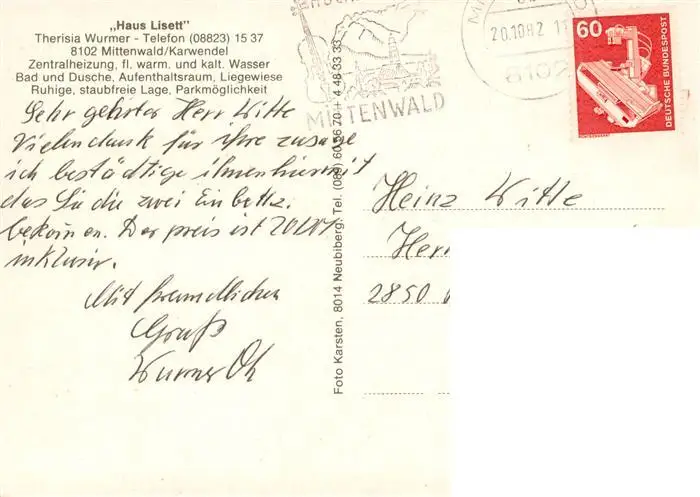 „Haus Lisett"
Therisia Wurmer - Telefon (08823) 15 37
8102 Mittenwald/Karwendel
Zentralheizung, fl. warm. und kalt. Wasser
Bad und Dusche, Aufenthaltsraum, Liegewiese
Ruhige, staubfreie Lage, Parkmöglichkeit
Sehr gehrter Herr Witte
Vielen dank für ihre zusage
ich bestädtige ihnen hiermit
das Sie die zwei Einbettz.
bekommen. Der preis ist 20
inklusiv.
Mit freundlichen
Gruß
Wurmer
Foto Karsten, 8014 Neubiberg. Tel. (089) 60 56 70 + 4 48 53 33
MITTENWALD
20.10.82 11
8102
60
DEUTSCHE BUNDESPOST
Heinz Witte
2850